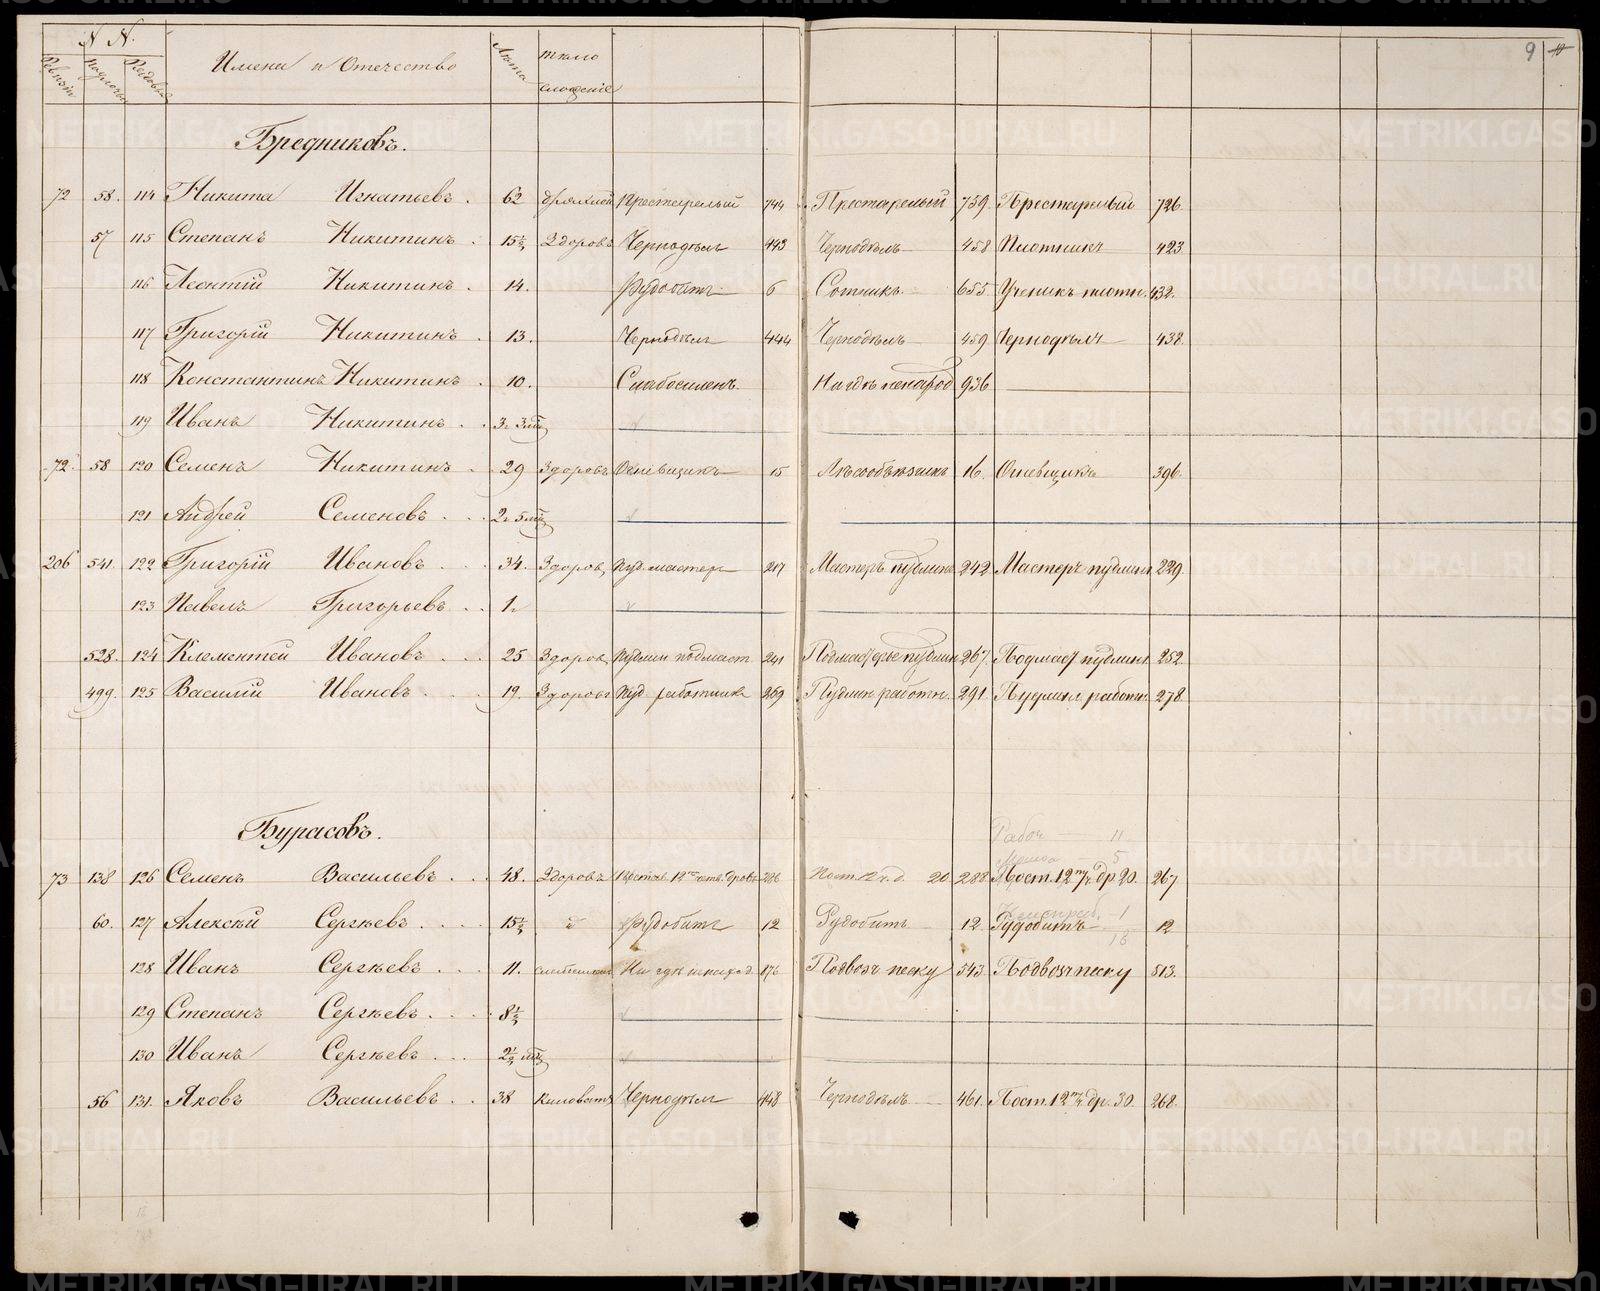 N N.
Ревизск. Подлочн. Рядовые Имена и Отечество Лѣта тѣло
сложеніе
9 11
Бредниковъ.
72 58. 114 Никита Игнатьевъ. 62 дряхлой Престарелый 744 Престарелый 759. Престарелый 726.
57 115 Степанъ Никитинъ. 15½ Здоровъ Чернодѣлъ 443 Чернодѣлъ 458 Плотникъ 423.
116 Леонтій Никитинъ. 14. Рудобитъ 6 Сотникъ 655. Ученикъ плотн. 432.
117 Григорій Никитинъ. 13. Чернодѣлъ 444 Чернодѣлъ 459 Чернодѣлъ 438.
118 Константинъ Никитинъ. 10. Слабосиленъ. Нигдѣ ненаход 936
119 Иванъ Никитинъ. . 3г 3мц
72. 58 120 Семенъ Никитинъ. 29 Здоровъ Огневщикъ 15 Лѣсообъѣзчикъ 16. Огневщикъ 396.
121 Андрей Семеновъ. . . 2г 5мц
206 541. 122 Григорій Ивановъ. . . 34. Здоровъ Пуд. мастеръ 217 Мастеръ пудлинг 242. Мастеръ пудлинг 229.
123 Павелъ Григорьевъ. . . 1г
528. 124 Клементей Ивановъ. . . 25 Здоровъ Пудлин подмаст 241 Подмастерье пудлин 267. Подмаст пудлинг. 252.
499. 125 Василій Ивановъ. . . 19. Здоровъ Пуд работника 269 Пудлин работн. 291. Пудлинг работн. 278.
Бурасовъ.
Рабоч 11
5
73 138 126 Семенъ Васильевъ. . . 48. Здоровъ Постав. 12 четв. дровъ 286 Пост. 12 ч. д. 20 288. Пост. 12 ч. др 20. 267
1
60. 127 Алексѣй Сергѣевъ. . . 15½ d Рудобитъ 12 Рудобитъ 12. Рудобитъ 12
18
128 Иванъ Сергѣевъ. . . 11. Нигдѣ ненаход. 176 Подвозч песку 543. Подвозч песку 513.
129 Степанъ Сергѣевъ. . . 8½
130 Иванъ Сергѣевъ. . . 2½ мц
56 131. Яковъ Васильевъ. . . 38 Киловатъ Чернодѣлъ 448 Чернодѣлъ 461. Пост. 12 ч. др. 30. 268.
METRIKI.GASO-URAL.RU